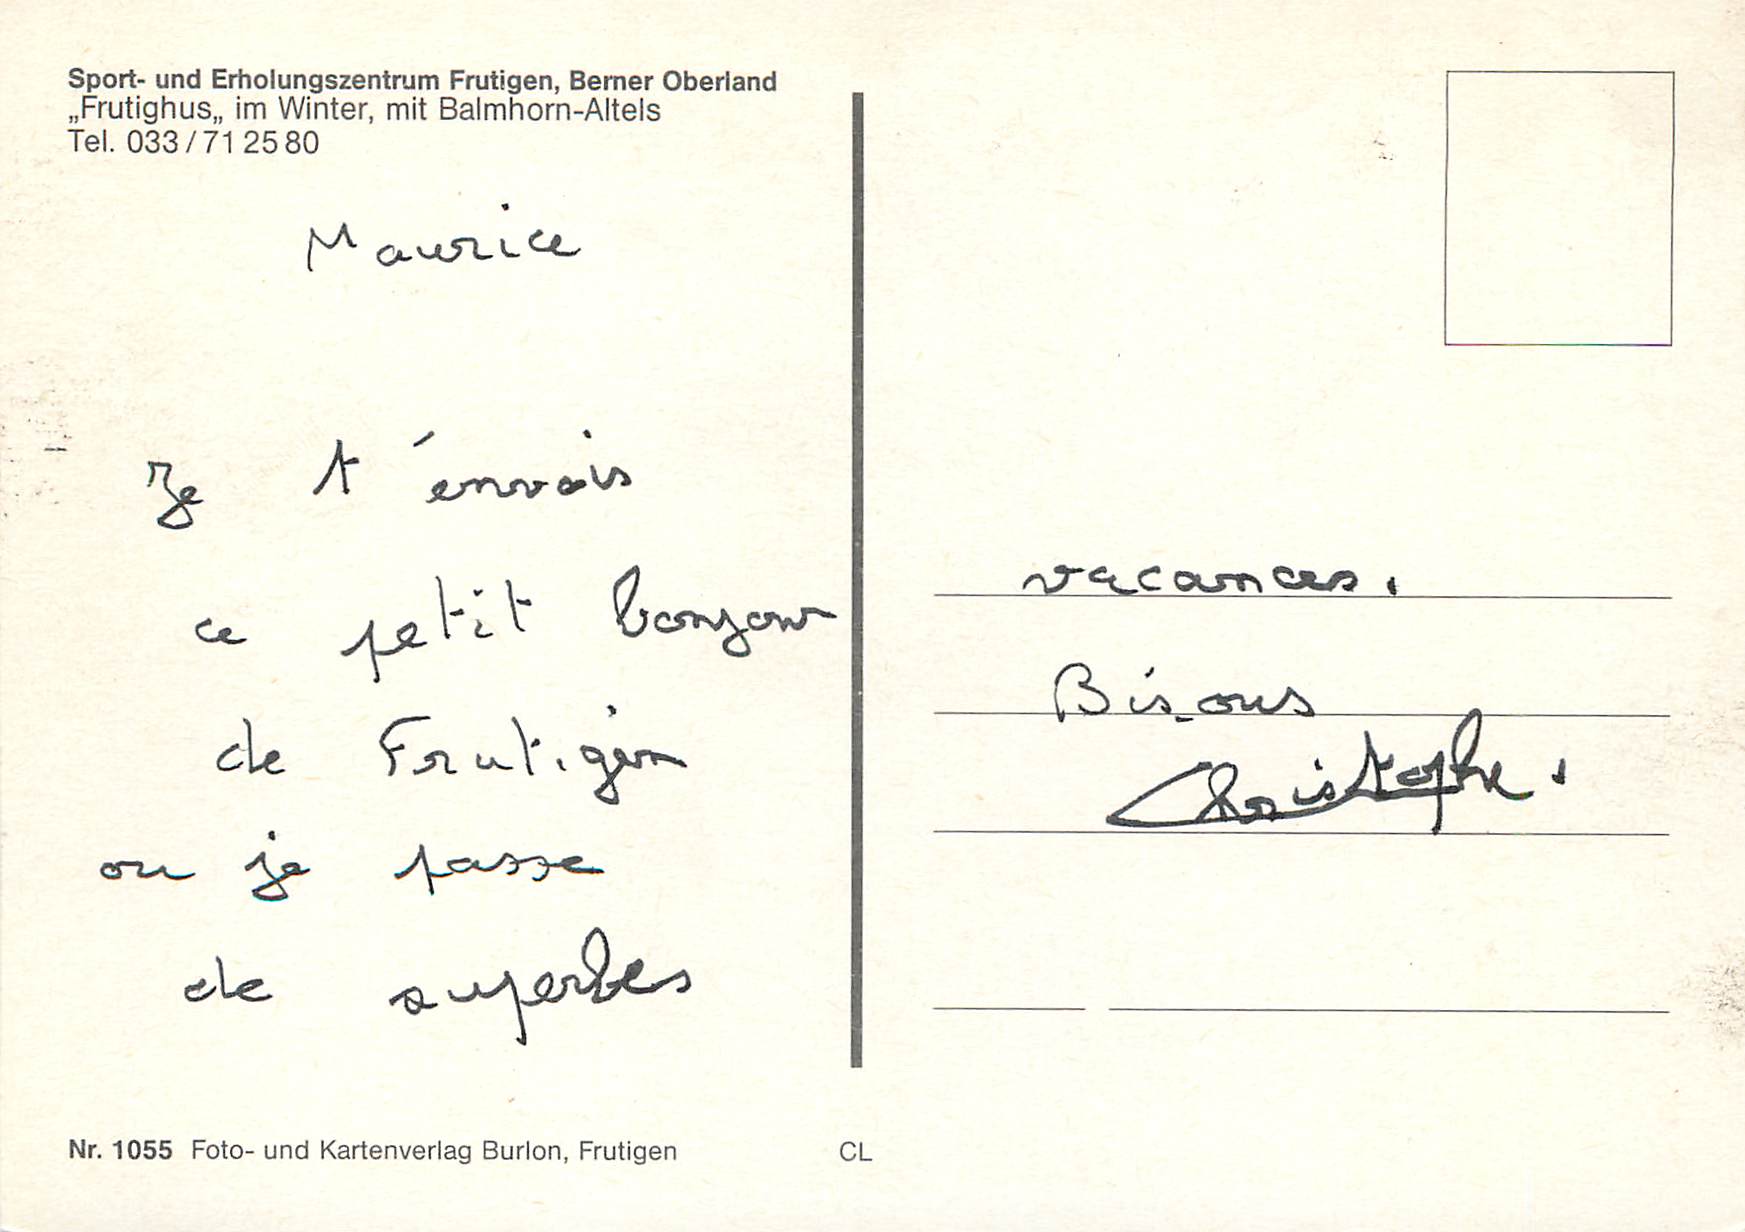 Sport- und Erholungszentrum Frutigen, Berner Oberland
„Frutighus„ im Winter, mit Balmhorn-Altels
Tel. 033/71 25 80
Maurice
Je t'envois
ce petit bonjour
de Frutigen
ou je passe
de superbes
vacances.
Bisous
Christophe.
Nr. 1055 Foto- und Kartenverlag Burlon, Frutigen
CL